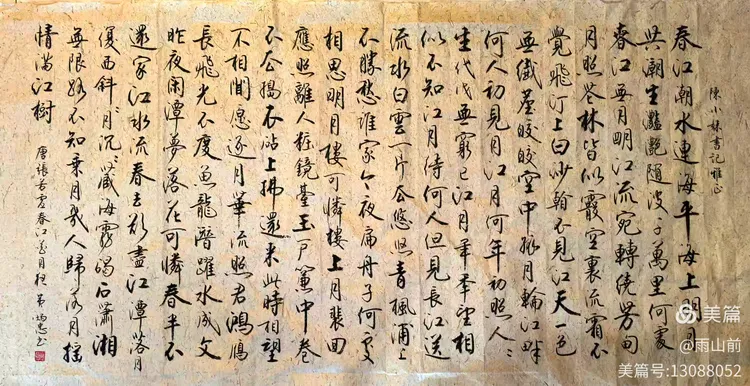 陳小妹書記雅正
春江潮水連海平海上明月
共潮生灔灔随波千萬里何處
春江無月明江流宛轉繞芳甸
月照花林皆似霰空裏流霜不
覺飛汀上白沙看不見江天一色
無纖塵皎皎空中孤月輪江畔
何人初見月江月何年初照人〻
生代代無窮已江月年年望相
似不知江月待何人但見長江送
流水白雲一片去悠悠青楓浦上
不勝愁誰家今夜扁舟子何處
相思明月樓可憐樓上月裴回
應照離人粧鏡臺玉戶簾中卷
不去搗衣砧上拂還来此時相望
不相聞愿逐月華流照君鴻鴈
長飛光不度魚龍潛躍水成文
昨夜闲潭夢落花可憐春半不
還家江水流春去欲盡江潭落月
復西斜〻月沉〻藏海霧碣石瀟湘
無限路不知乘月幾人歸落月摇
情滿江樹
唐張若虚春江花月夜
美篇
@雨山前
美篇号:13088052